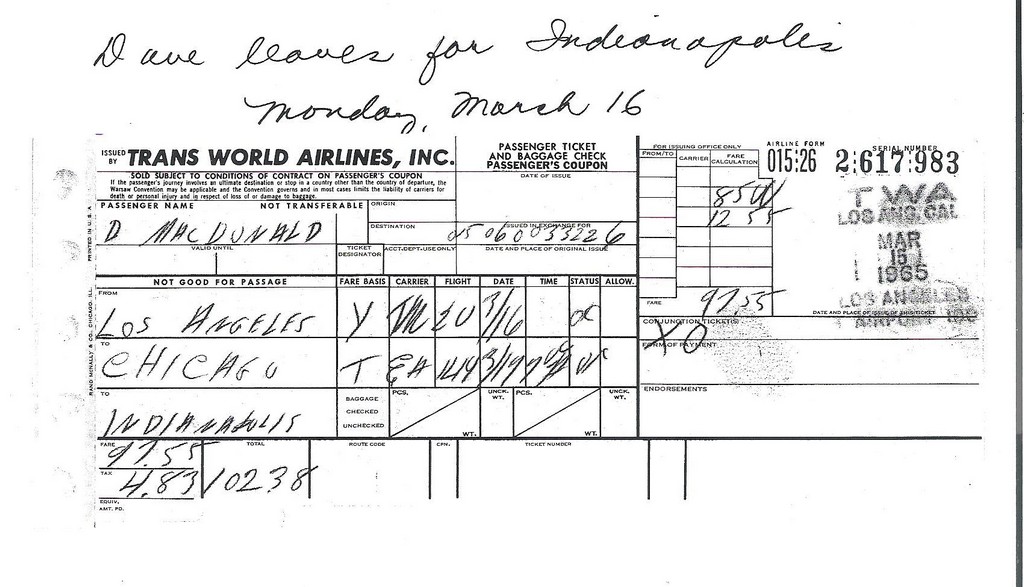 Dave leaves for Indianapolis
Monday, March 16
ISSUED BY TRANS WORLD AIRLINES, INC.
SOLD SUBJECT TO CONDITIONS OF CONTRACT ON PASSENGER'S COUPON
If the passenger's journey involves an ultimate destination or stop in a country other than the country of departure, the
Warsaw Convention may be applicable and the Convention governs and in most cases limits the liability of carriers for
death or personal injury and in respect of loss of or damage to baggage.
PASSENGER TICKET
AND BAGGAGE CHECK
PASSENGER'S COUPON
DATE OF ISSUE
FOR ISSUING OFFICE ONLY
FROM/TO CARRIER FARE CALCULATION
85
12 55
FARE 97.55
AIRLINE FORM SERIAL NUMBER
015:26 2:617:983
TWA
LOS ANG. CAL
MAR
1965
LOS ANGELES
AIRPORT
DATE AND PLACE OF ISSUE OF THIS TICKET
PASSENGER NAME NOT TRANSFERABLE
D MACDONALD
ORIGIN
DESTINATION ISSUED IN EXCHANGE FOR
VALID UNTIL TICKET DESIGNATOR ACCT. DEPT. USE ONLY DATE AND PLACE OF ORIGINAL ISSUE
PRINTED IN U.S.A.
RAND MCNALLY & CO. CHICAGO, ILL.
NOT GOOD FOR PASSAGE FARE BASIS CARRIER FLIGHT DATE TIME STATUS ALLOW.
FROM LOS ANGELES Y TW 20 3/16 OK
TO CHICAGO T EA
TO INDIANAPOLIS
BAGGAGE CHECKED UNCHECKED PCS. WT. UNCK. WT. PCS. WT. UNCK. WT.
CONJUNCTION TICKET(S)
XO
FORM OF PAYMENT
ENDORSEMENTS
FARE 97.55 TOTAL ROUTE CODE CPN. TICKET NUMBER
TAX 4.83 102.38
EQUIV. AMT. PD.